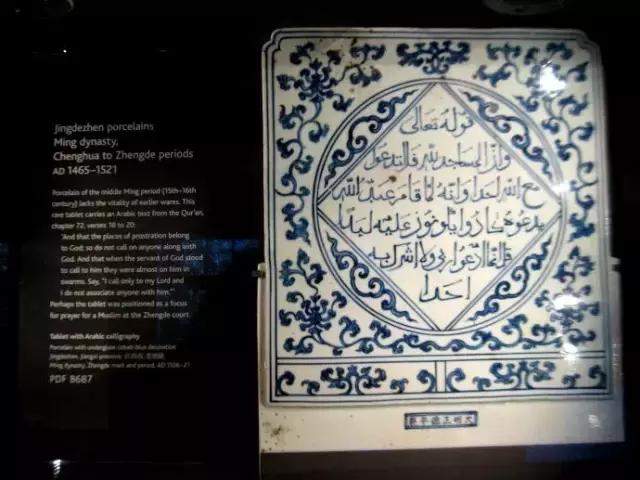 Jingdezhen porcelains
Ming dynasty,
Chenghua to Zhengde periods
AD 1465–1521
Porcelain of the middle Ming period (15th–16th
century) lacks the vitality of earlier wares. This
rare tablet carries an Arabic text from the Qur'an,
chapter 72, verses 18 to 20:
"And that the places of prostration belong
to God; so do not call on anyone along with
God. And that when the servant of God stood
to call to him they were almost on him in
swarms. Say, "I call only to my Lord and
I do not associate anyone with him.""
Perhaps the tablet was positioned as a focus
for prayer for a Muslim at the Zhengde court.
Tablet with Arabic calligraphy
Porcelain with underglaze cobalt-blue decoration
Jingdezhen, Jiangxi province
Ming dynasty, Zhengde mark and period, AD 1506–21
PDF 8687
قوله تعالى
وان المساجد لله فلا تدعوا
مع الله احدا وانه لما قام عبد الله
يدعوه كادوا يكونون عليه لبدا
قل انما ادعوا ربي ولا اشرك به
احدا
大明正德年製